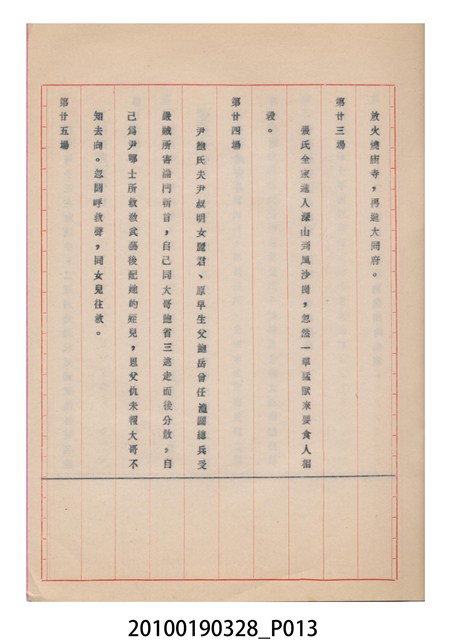 放火燒廟寺，再逃大同府。
第廿三場
張氏全家逃入深山到風沙崗，忽然一羣猛獸來要食人相
殺。
第廿四場
尹鮑氏夫尹叔明女麗君、原早生父鮑岳曾任潼關總兵受
嚴賊所害滿門斬首，自己同大哥鮑省三逃走而後分散，自
己爲尹哪士所救教武藝後配她的姪兒，思父仇未報大哥不
知去向。忽聞呼救聲，同女兒往救。
第廿五場
20100190328_P013